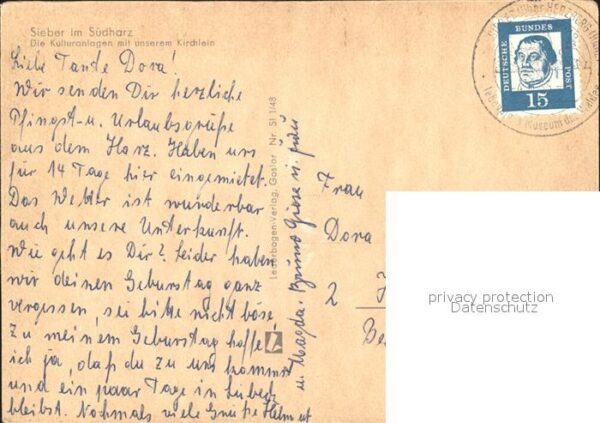 Sieber im Südharz
Die Kulturanlagen mit unserem Kirchlein
Liebe Tante Dora!
Wir senden Dir herzliche
Pfingst-u. Urlaubsgrüße
aus dem Harz. Haben uns
für 14 Tage hier eingemietet.
Das Wetter ist wunderbar
auch unsere Unterkunft.
Wie geht es Dir? Leider haben
wir deinen Geburstag ganz
vergessen, sei bitte nicht böse,
Zu meinem Geburstag hoffe
ich ja, daß du zu uns kommst
und ein paar Tage in Lübeck
bleibst. Nochmals viele Grüße Helmut
u. Magda. Bruno Giese u.
Lederbogen-Verlag, Goslar Nr. SI 1/48
DEUTSCHE BUNDES POST
15
über HERZBERG
Museum
Frau
Dora
2
privacy protection
Datenschutz